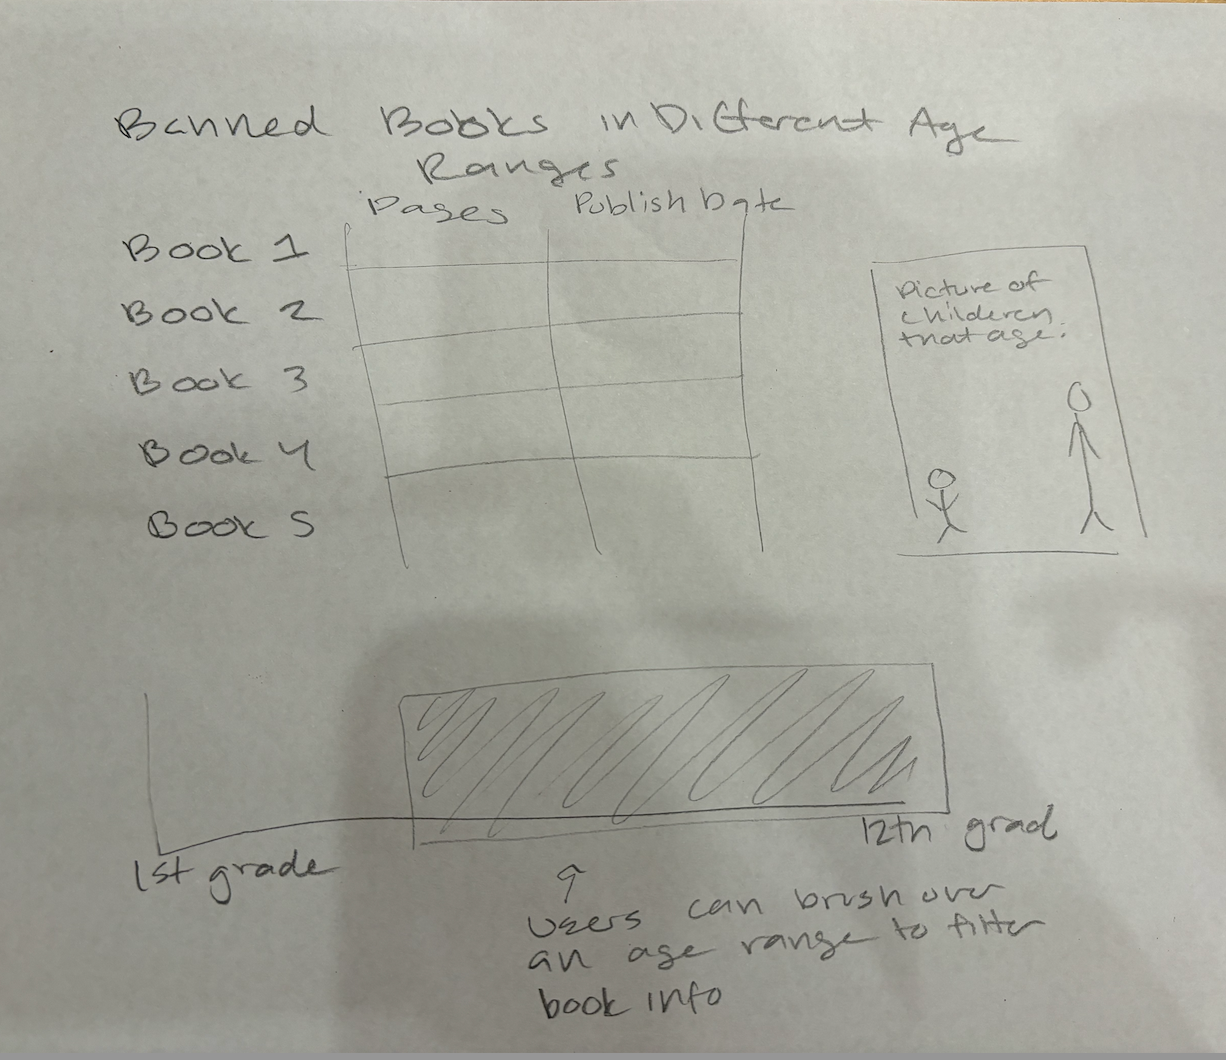 Banned Books in Different Age
Ranges
Pages Publish Date
Book 1
Book 2
Book 3
Book 4
Book 5
Picture of
childeren
that age.
1st grade
12th grad
users can brush over
an age range to filter
book info